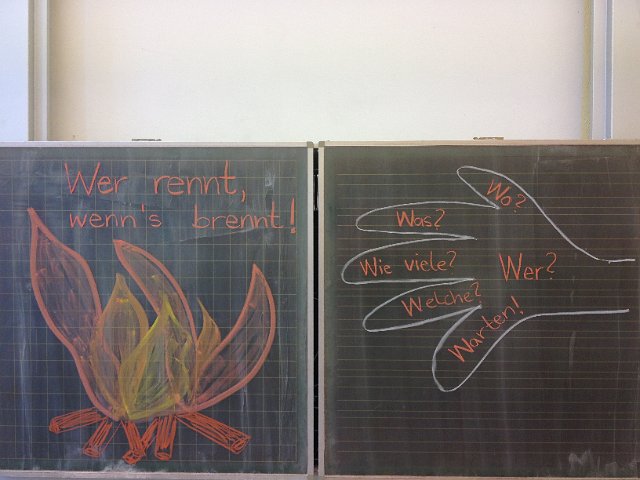 Wer rennt,
wenn's brennt!
Wo?
Was?
Wie viele?
Wer?
Welche?
Warten!